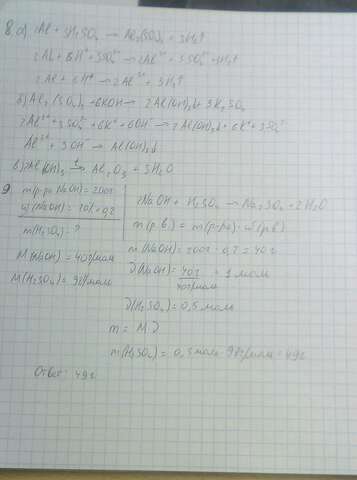 8. а) 2Al + 3H₂SO₄ → Al₂(SO₄)₃ + 3H₂↑
2Al + 6H⁺ + 3SO₄²⁻ → 2Al³⁺ + 3SO₄²⁻ + 3H₂↑
2Al + 6H⁺ → 2Al³⁺ + 3H₂↑
б) Al₂(SO₄)₃ + 6KOH → 2Al(OH)₃↓ + 3K₂SO₄
2Al³⁺ + 3SO₄²⁻ + 6K⁺ + 6OH⁻ → 2Al(OH)₃↓ + 6K⁺ + 3SO₄²⁻
Al³⁺ + 3OH⁻ → Al(OH)₃↓
в) 2Al(OH)₃ →t Al₂O₃ + 3H₂O
9. m(р-ра NaOH) = 200г
ω(NaOH) = = 0,2
m(H₂SO₄) - ?
M(NaOH) = 40г/моль
M(H₂SO₄) = 98г/моль
2NaOH + H₂SO₄ → Na₂SO₄ + 2H₂O
m(р.в.) = m(р-ра) · ω(р.в)
m(NaOH) = 200г · 0,2 = 40г
ν(NaOH) = 40г / 40г/моль = 1 моль
ν(H₂SO₄) = 0,5 моль
m = M ν
m(H₂SO₄) = 0,5 моль · 98г/моль = 49г
Ответ: 49г